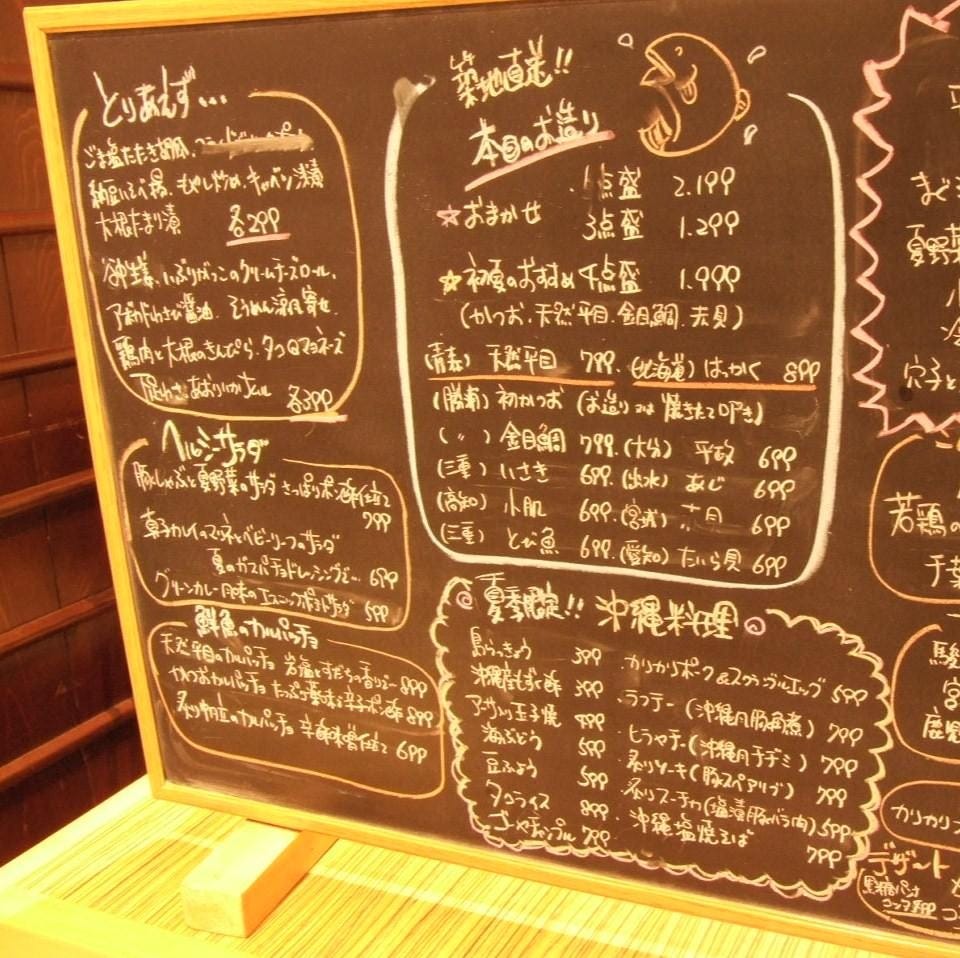 とりあえず…
ごま塩たたき胡瓜、
納豆いそべ揚、もやし炒め、キャベツ浅漬
大根たまり漬 各299
いぶりがっこのクリームチーズロール、
アボカドわさび醤油、そうめん涼風寄せ
鶏肉と大根のきんぴら、タコのマヨネーズ
各399
ヘルシーサラダ
豚しゃぶと夏野菜のサラダ さっぱりポン酢仕立て
799
真子カレイのマリネとベビーリーフのサラダ
夏のガスパチョドレッシングで… 699
グリーンカレー風味のエスニックポテトサラダ 599
鮮魚のカルパッチョ
天然平目のカルパッチョ 岩塩とすだちの香りで… 899
かつおカルパッチョ たっぷり薬味と辛子ポン酢 899
炙り のカルパッチョ 辛酢味噌仕立て 699
築地直送!!
本日のお造り
5点盛 2.199
☆おまかせ
3点盛 1.299
☆初夏のおすすめ 4点盛 1.999
(かつお、天然平目、金目鯛、赤貝)
(青森) 天然平目 799 (北海道) はっかく 899
(勝浦) 初かつお (お造り又は焼きたて叩き)
(〃) 金目鯛 799 (大分) 平政 699
(三重) いさき 699 (出水) あじ 699
(高知) 小肌 699 (宮城) 赤貝 699
(三重) とび魚 699 (愛知) たいら貝 699
夏季限定!! 沖縄料理
島らっきょう 399
沖縄産もずく酢 399
アーサ入り玉子焼 499
海ぶどう 599
豆ふよう 599
タコライス 899
ゴーヤチャンプル 799
カリカリポーク&スクランブルエッグ 599
ラフテー(沖縄風豚角煮) 799
ヒラヤーチー(沖縄風チヂミ) 799
炙りソーキ(豚スペアリブ) 799
炙りスーチカ(塩漬豚バラ肉) 599
沖縄塩焼そば
799
まぐ
夏野菜
穴子と
若鶏の
千葉
宮
カリカリ
デザート
黒糖パンナ
コッタ